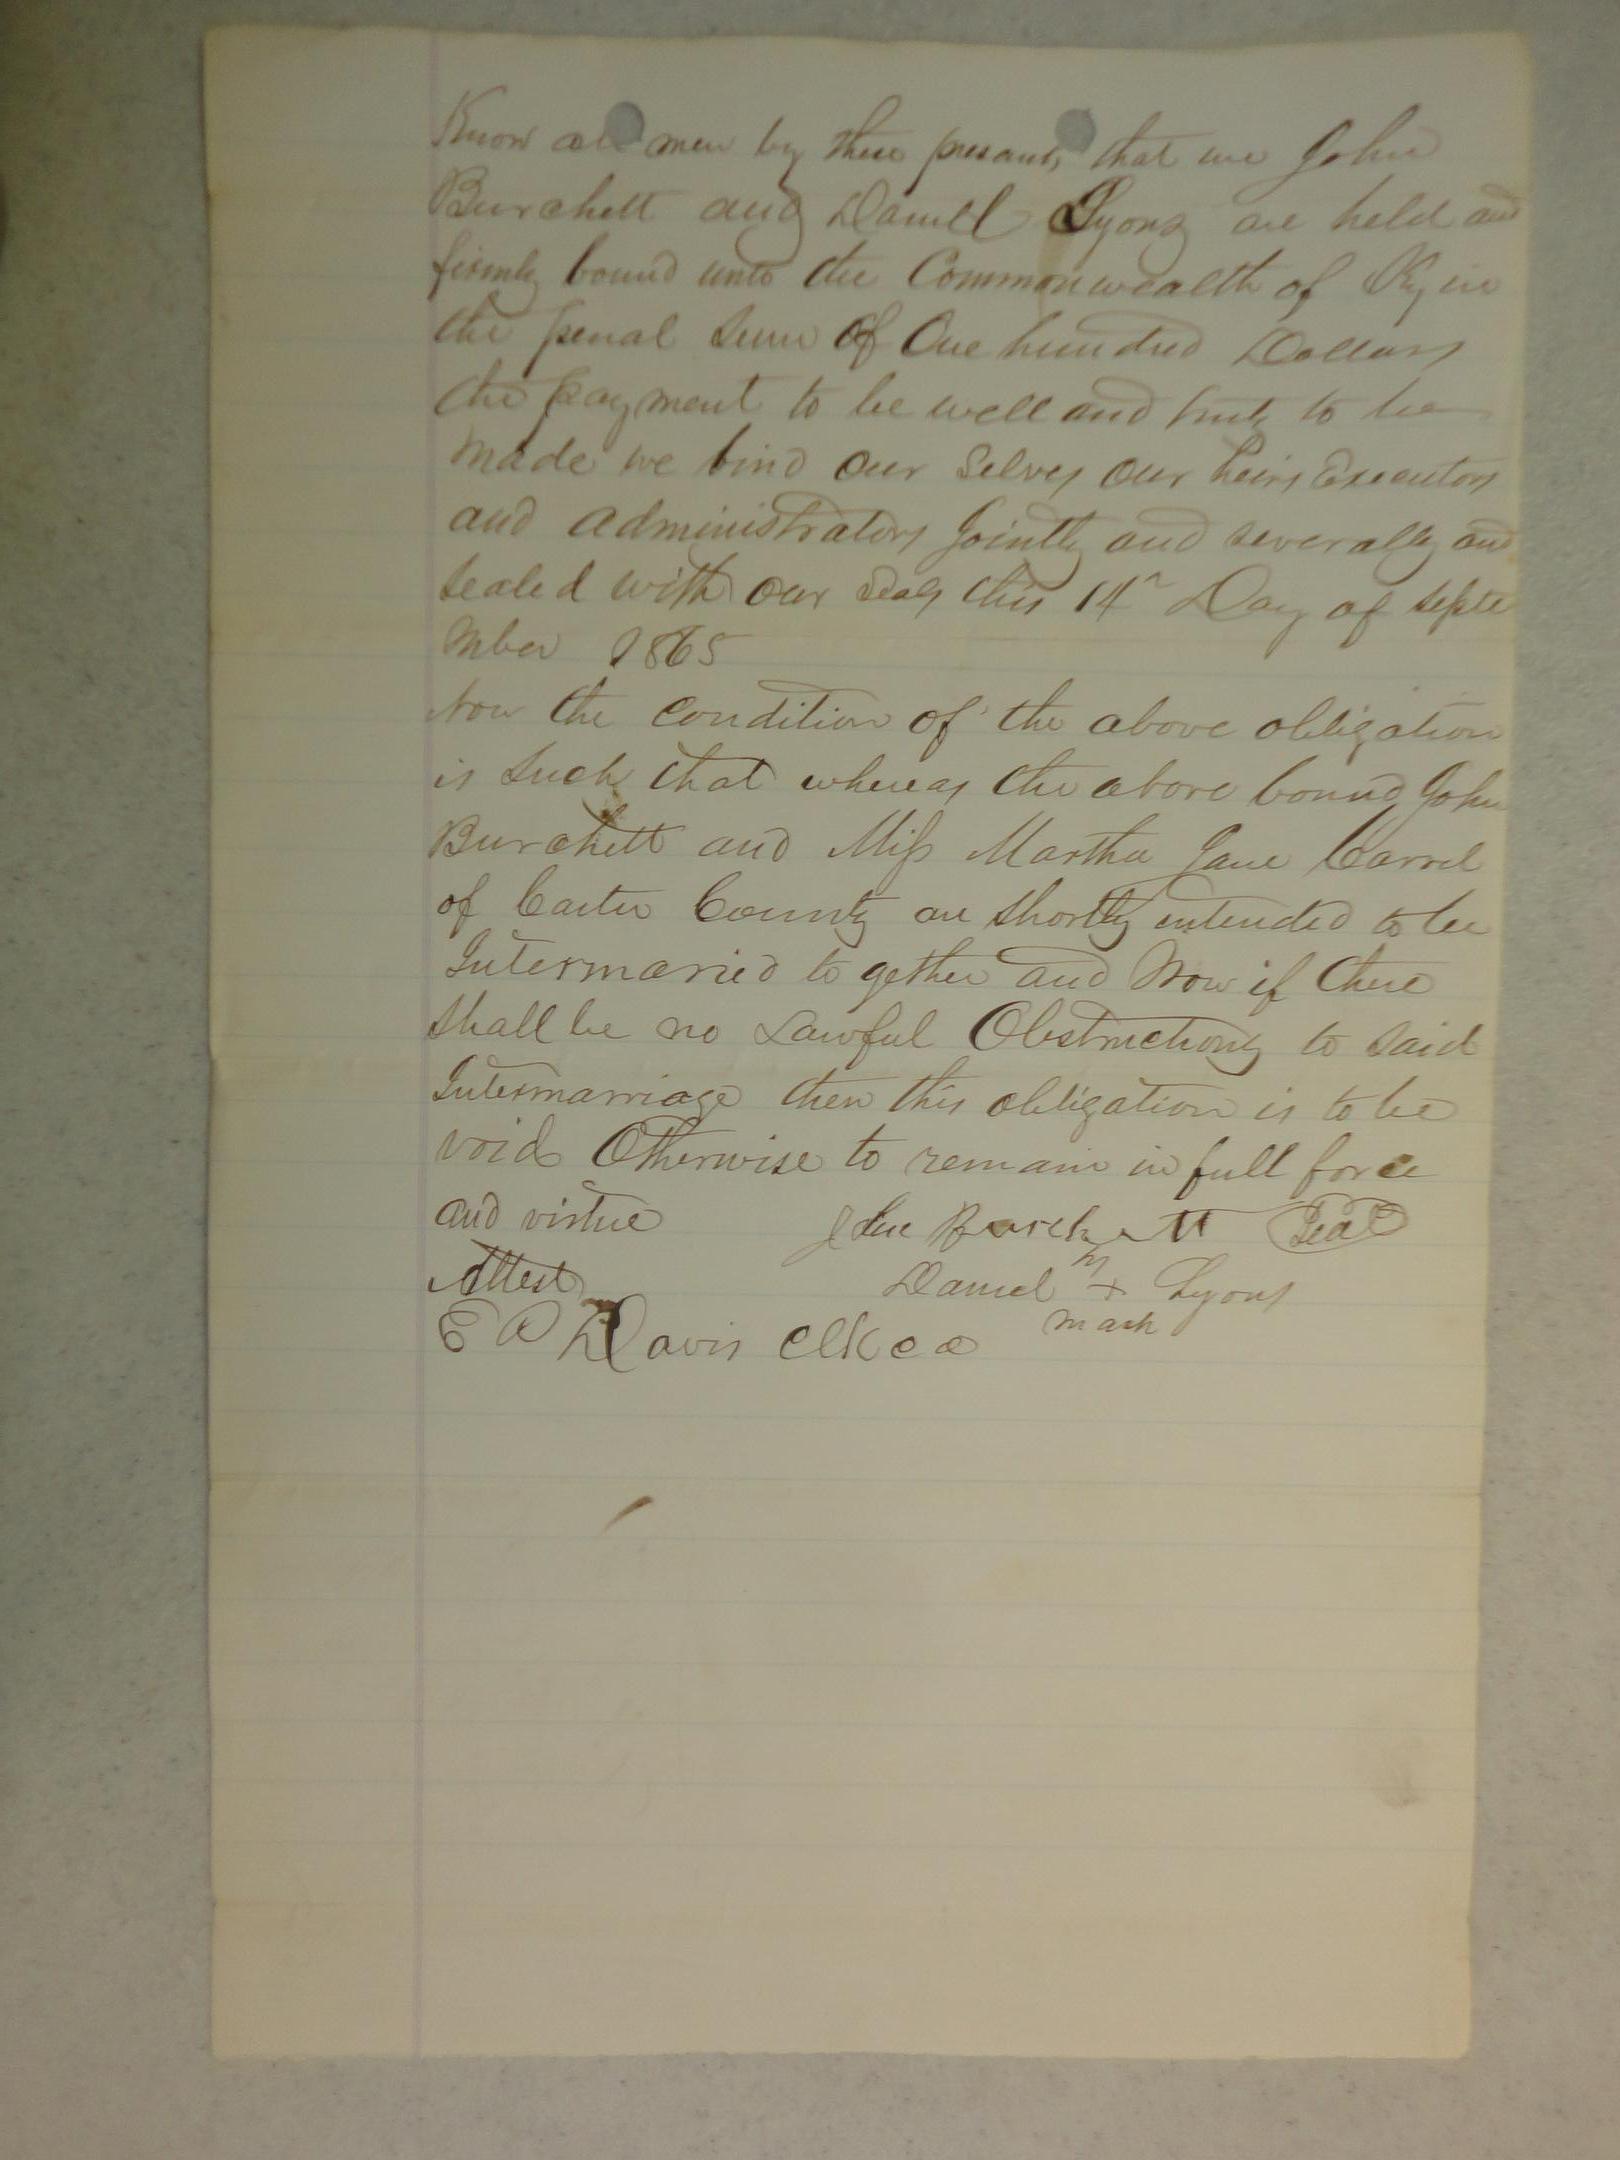 Know all men by these presants that we John
Burchett and Daniel Lyons are held and
firmly bound unto the Commonwealth of Ky in
the penal Sum Of One hundred Dollars
the payment to be well and truly to be
made we bind our Selves our heirs Executors
and administrators Jointly and severally and
sealed with our Seals this 14th Day of Septe
mber 1865
Now the Condition of the above obligation
is Such that whereas the above bound John
Burchett and Miss Martha Jane Carrel
of Carter County are Shortly intended to be
Intermarried to gether and Now if there
Shall be no Lawful Obstructions to Said
Intermarriage then this obligation is to be
void Otherwise to remain in full force
and virtue John Burchett Seal
Attest Daniel + Lyons
mark
E Davis Clk